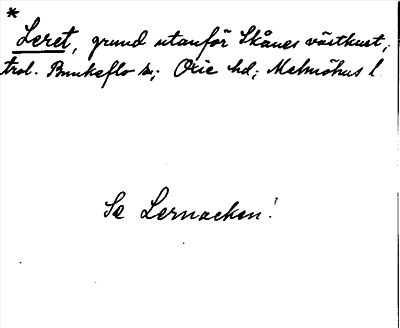 * Leret, grund utanför Skånes västkust,
trol. Bunkeflo sn; Oxie hd; Malmöhus l.
Se Lernacken!